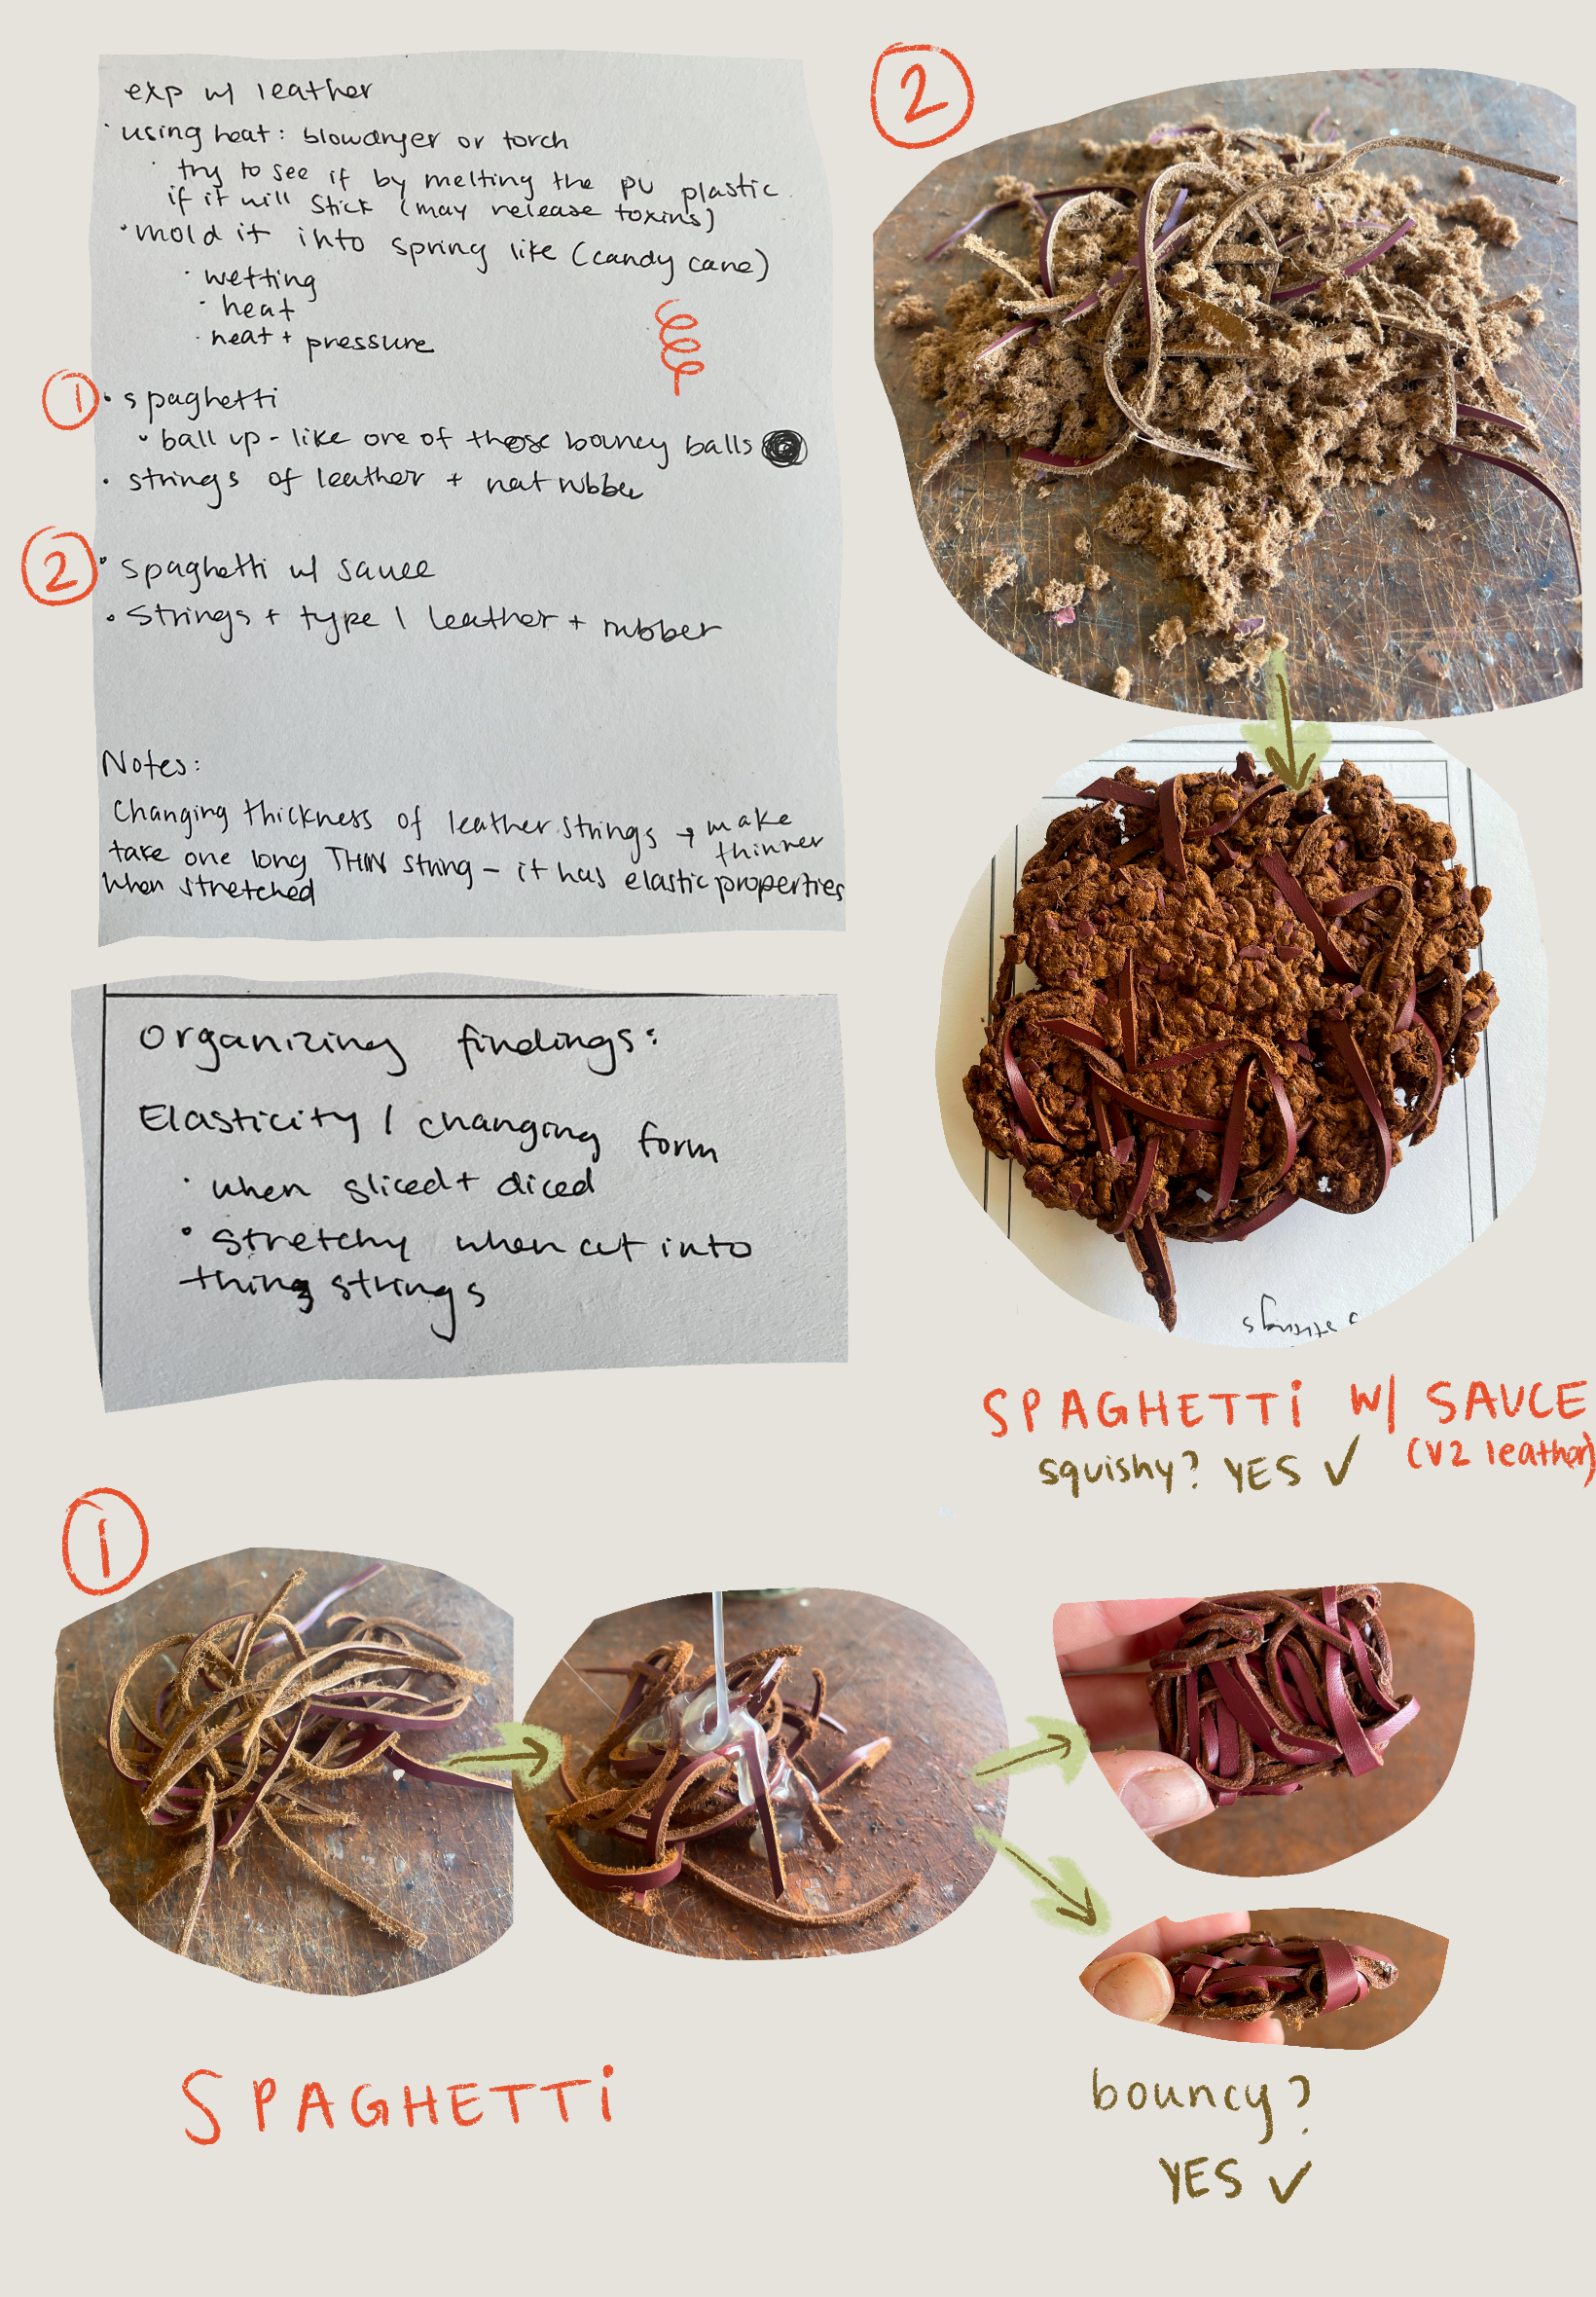 exp w/ leather
· using heat: blowdryer or torch
· try to see if by melting the pu plastic
if it will stick (may release toxins)
· mold it into spring like (candy cane)
· wetting
· heat
· heat + pressure
1
· spaghetti
· ball up - like one of those bouncy balls
· strings of leather + nat rubber
2
· spaghetti w/ sauce
· strings + type 1 leather + rubber
Notes:
Changing thickness of leather strings → make thinner
take one long THIN string - it has elastic properties
when stretched
Organizing findings:
Elasticity / changing form
· when sliced + diced
· stretchy when cut into
thing strings
2
strings
SPAGHETTi W/ SAUCE
(V2 leather)
squishy? YES ✓
1
SPAGHETTi
bouncy?
YES ✓